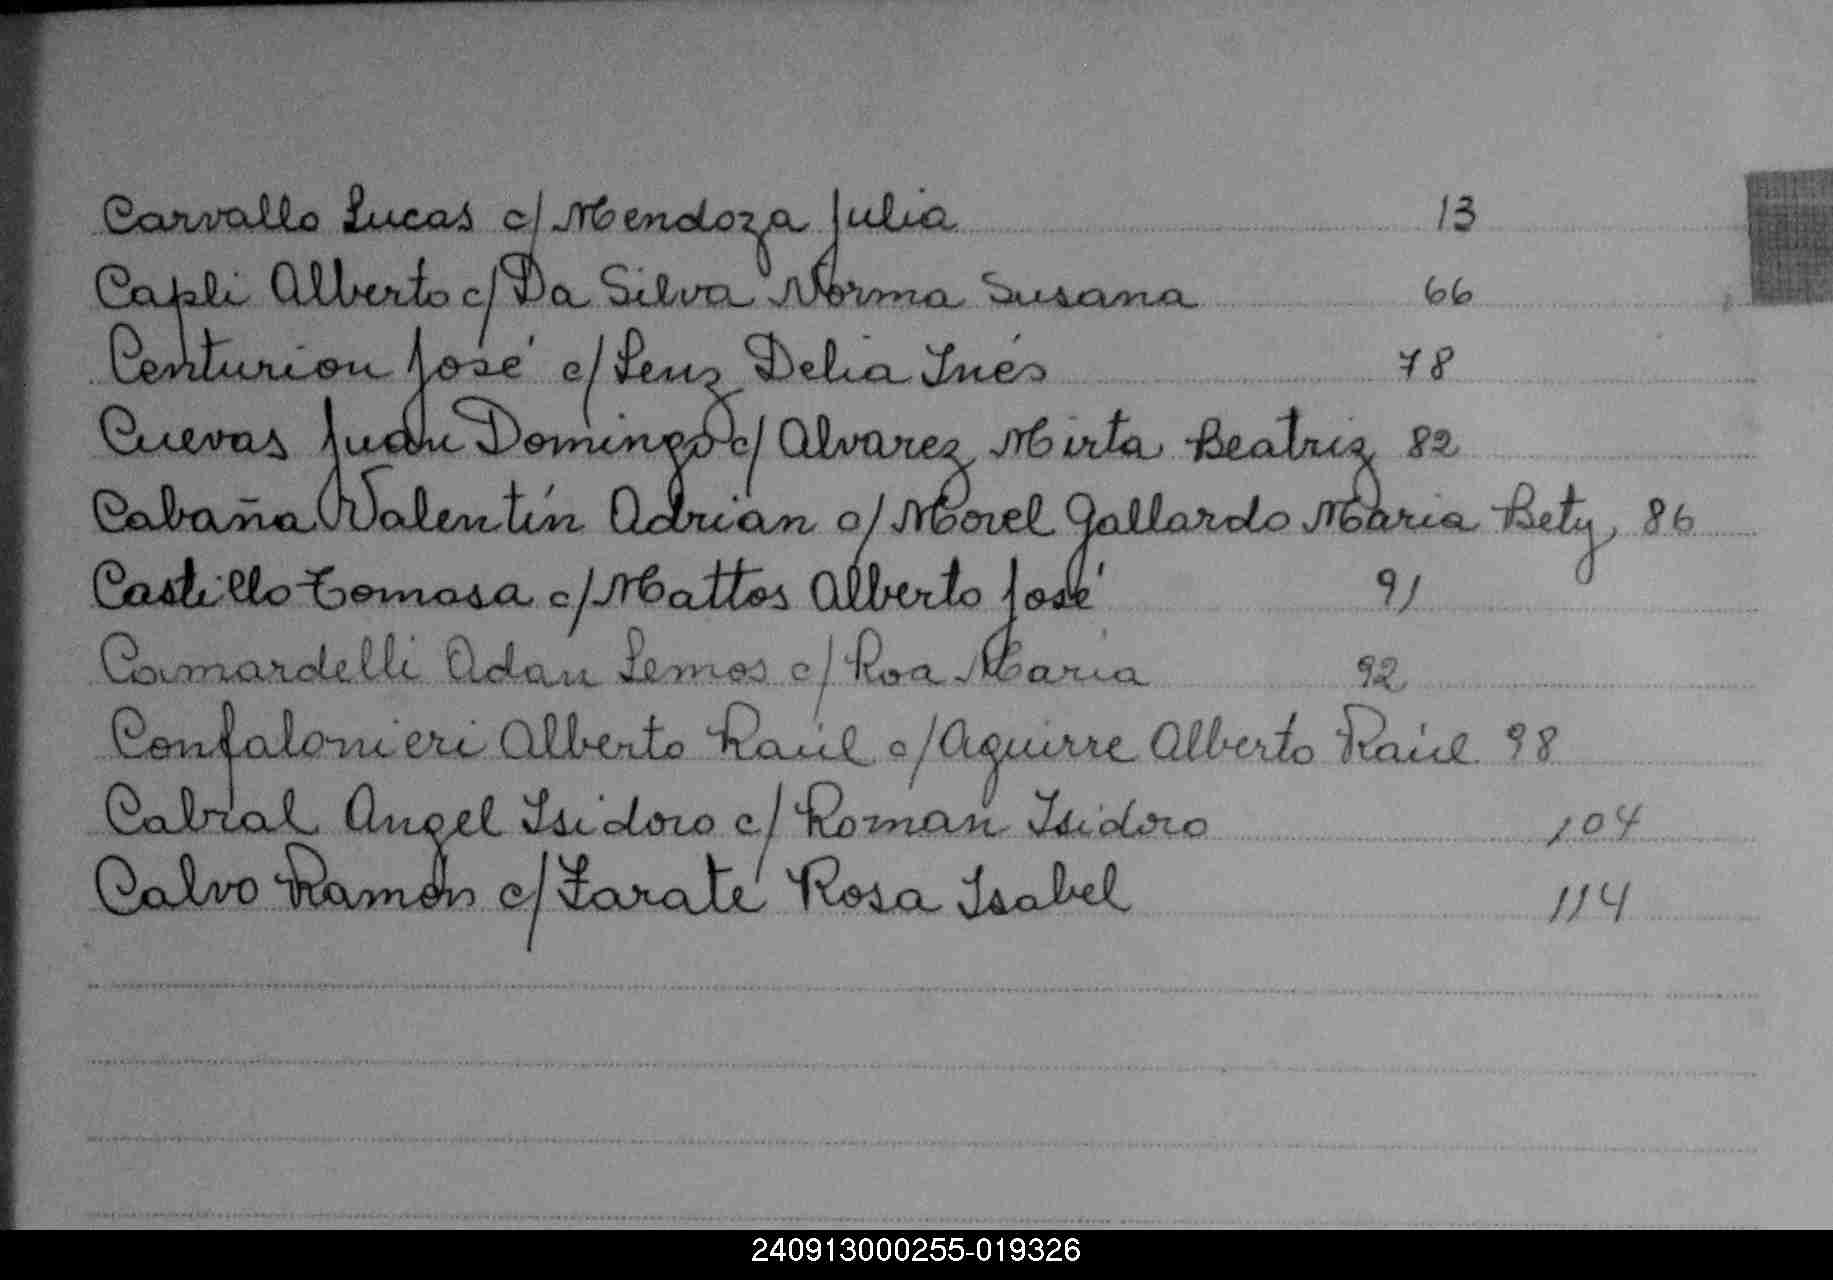 Carvallo Lucas c/ Mendoza Julia 13
Capli Alberto c/ Da Silva Norma Susana 66
Centurion José c/ Lenz Delia Inés 78
Cuevas Juan Domingo c/ Alvarez Mirta Beatriz 82
Cabaña Valentín Adrian c/ Morel Gallardo Maria Bety 86
Castillo Tomasa c/ Mattos Alberto José 91
Camardelli Adan Lemos c/ Roa Maria 92
Confalonieri Alberto Raúl c/ Aguirre Alberto Raúl 98
Cabral Angel Isidoro c/ Roman Isidoro 104
Calvo Ramón c/ Zarate Rosa Isabel 114
240913000255-019326